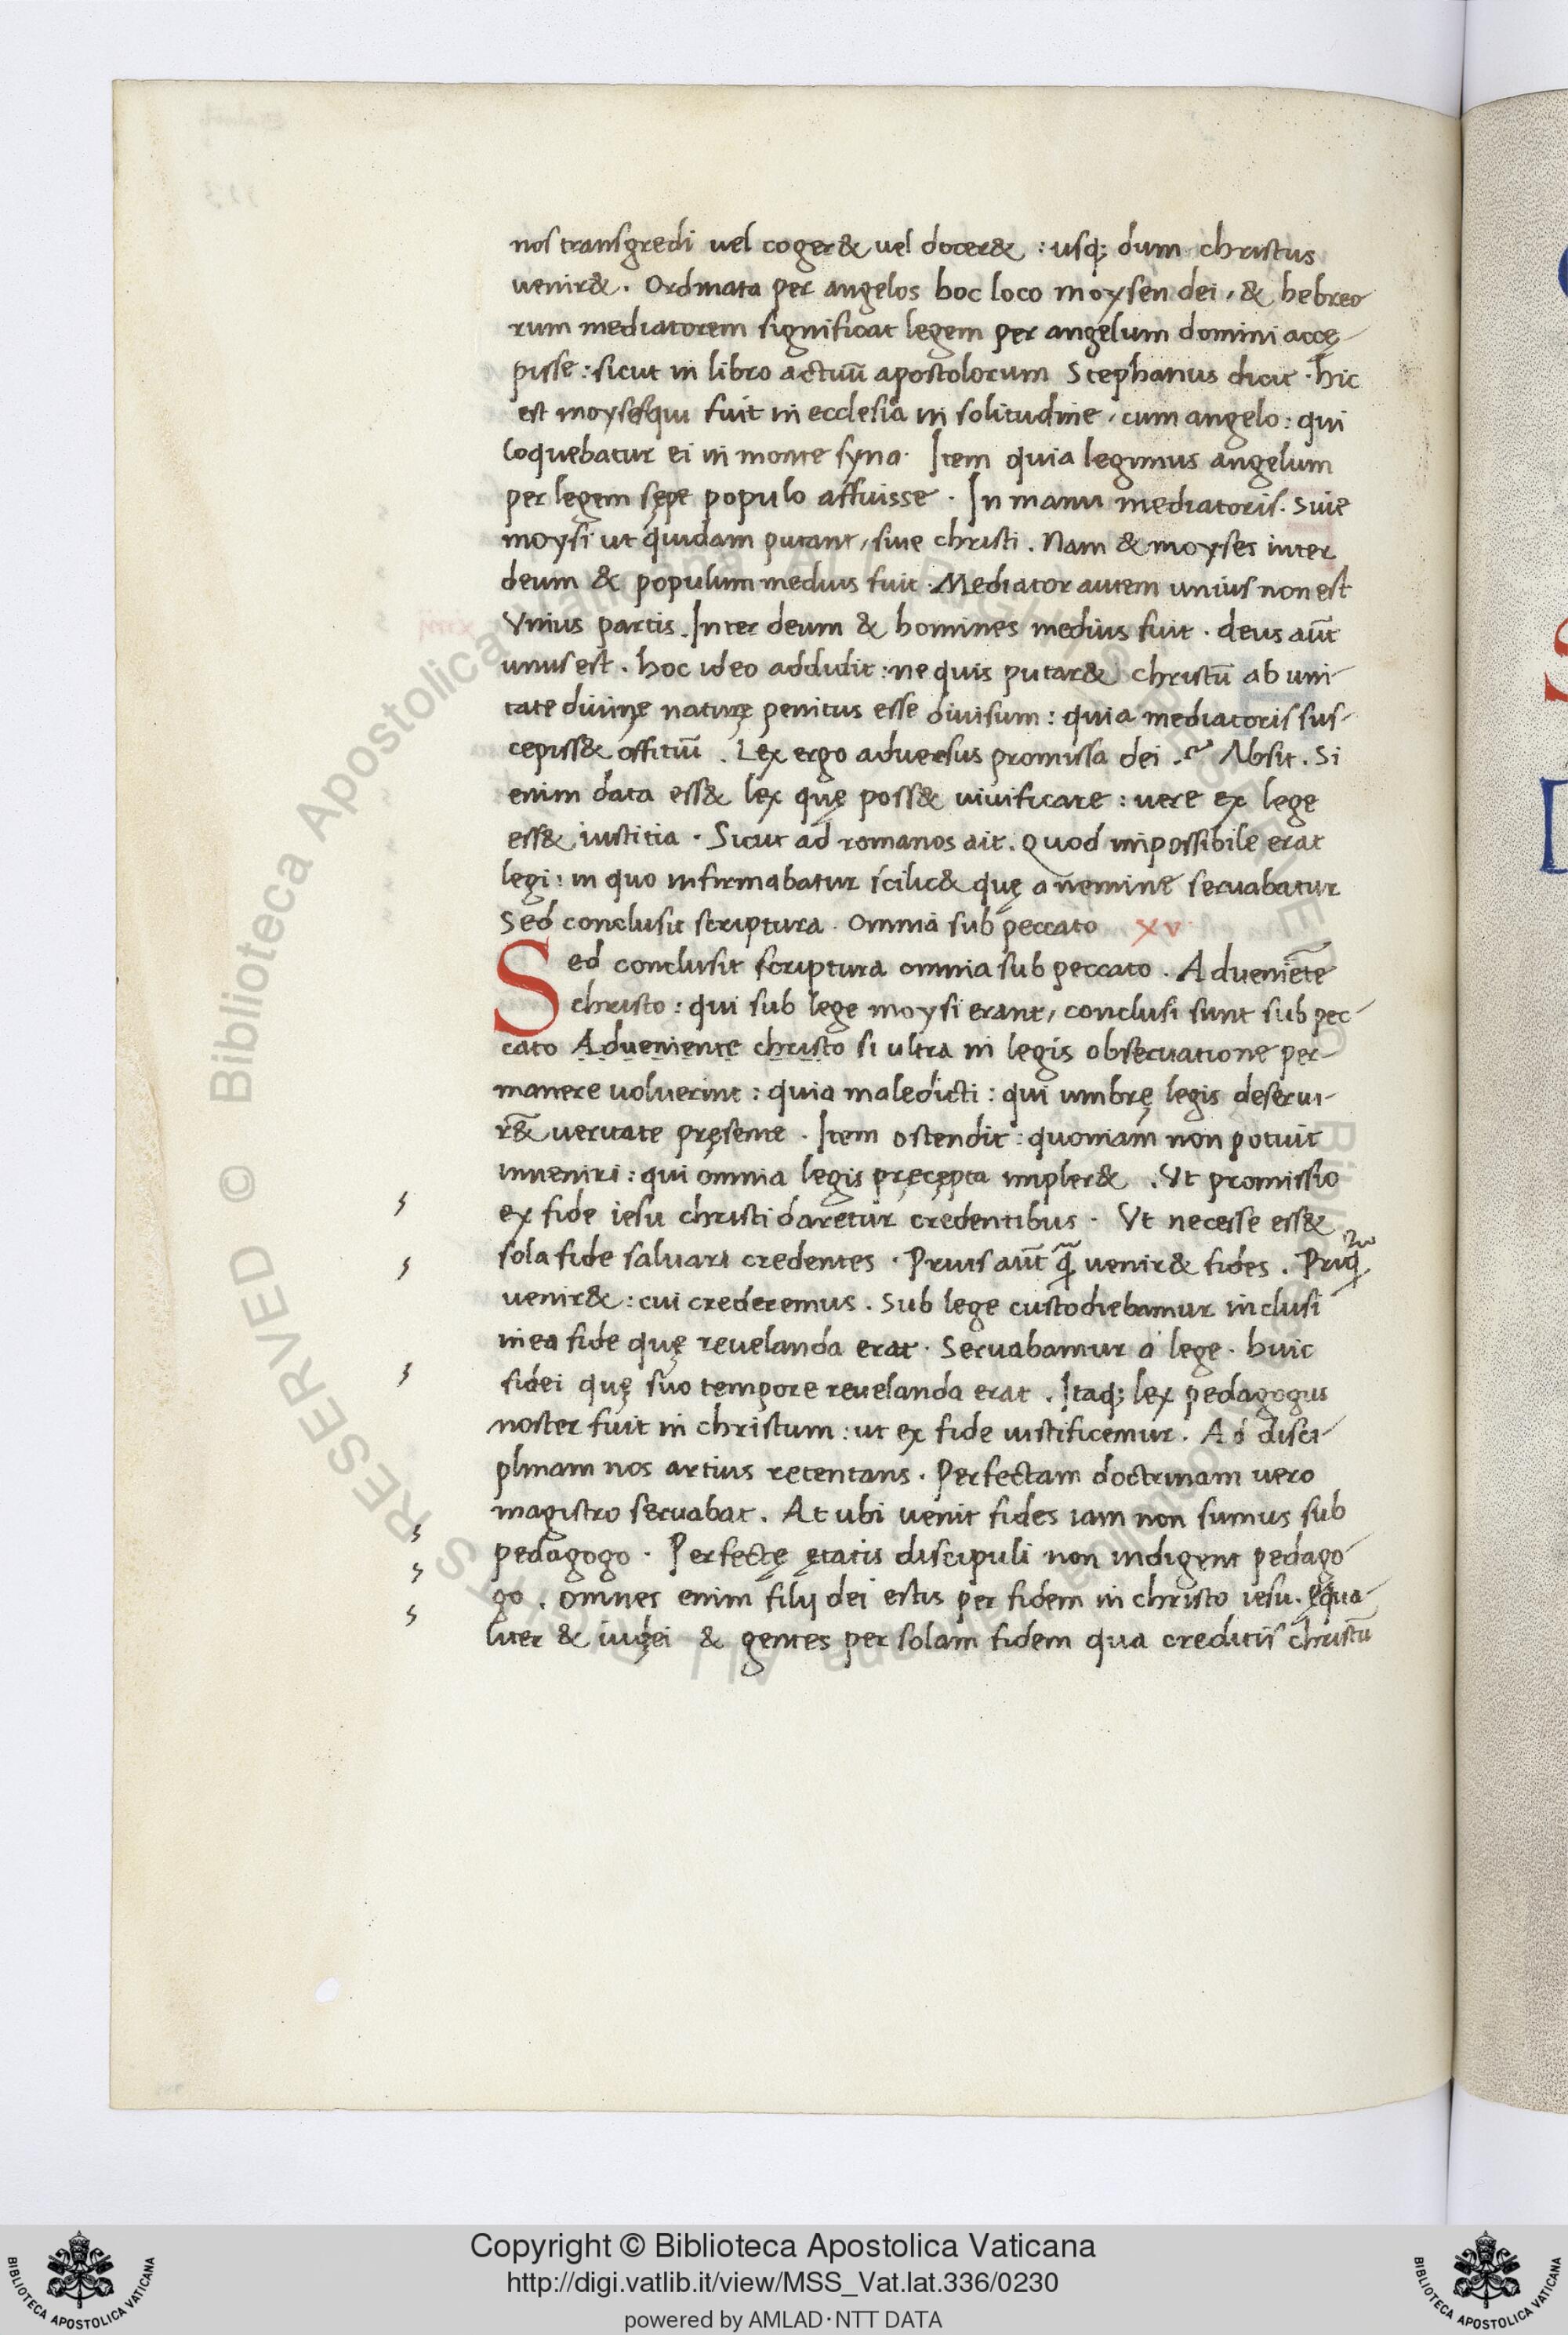 nos transgredi uel coger& uel docer& : usq; dum christus
uenir& . Ordinata per angelos hoc loco moysen dei , & hebreo
rum mediatorem significat legem per angelum domini accę-
pisse : sicut in libro actuū apostolorum Stephanus dicit . hic
est moyses qui fuit in ecclesia in solitudine , cum angelo : qui
loquebatur ei in monte syna . Item quia legimus angelum
per legem sępe populo affuisse . In manu mediatoris . Siue
moysi ut quidam putant , siue christi . Nam & moyses inter
deum & populum medius fuit . Mediator autem unius non est
Vnius partis . Inter deum & homines medius fuit . deus aūt
unus est . hoc ideo addidit : ne quis putar& christū ab uni-
tate diuinę naturę penitus esse diuisum : quia mediatoris sus-
cepiss& offitiū . Lex ergo aduersus promissa dei ? Absit . Si
enim data ess& lex quę poss& uiuificare : uere ex lege
ess& iustitia . Sicut ad romanos ait . Quod impossibile erat
legi : in quo infirmabatur scilic& quę a nemine seruabatur
Sed conclusit scriptura . Omnia sub peccato xv
Sed conclusit scriptura omnia sub peccato . Adueniēte
christo : qui sub lege moysi erant , conclusi sunt sub pec-
cato Adueniente christo si ultra in legis obseruatione per-
manere uoluerint : quia maledicti : qui umbrę legis deserui-
r̄& ueritate pręsente . Item ostendit : quoniam non potuit
inueniri : qui omnia legis pręcępta impler& . Ut promissio
ex fide iesu christi daretur credentibus . Ut necesse ess&
sola fide saluari credentes . Prius aūt q̄ uenir& fides . Priusq̄
uenir& : cui crederemus . Sub lege custodiebamur inclusi
in ea fide quę reuelanda erat . Seruabamur a lege . huic
fidei quę suo tempore reuelanda erat . Itaq; lex pedagogus
noster fuit in christum : ut ex fide iustificemur . Ad disci-
plinam nos artius retentans . Perfectam doctrinam uero
magistro seruabat . At ubi uenit fides iam non sumus sub
pedagogo . Perfectę ętatis discipuli non indigent pedago-
go . Omnes enim filij dei estis per fidem in christo iesu . ęqua-
liter & iudei & gentes per solam fidem qua creditis christū
Copyright © Biblioteca Apostolica Vaticana
http://digi.vatlib.it/view/MSS_Vat.lat.336/0230
powered by AMLAD·NTT DATA
BIBLIOTECA APOSTOLICA VATICANA
BIBLIOTECA APOSTOLICA VATICANA
© Biblioteca Apostolica Vaticana ALL RIGHTS RESERVED